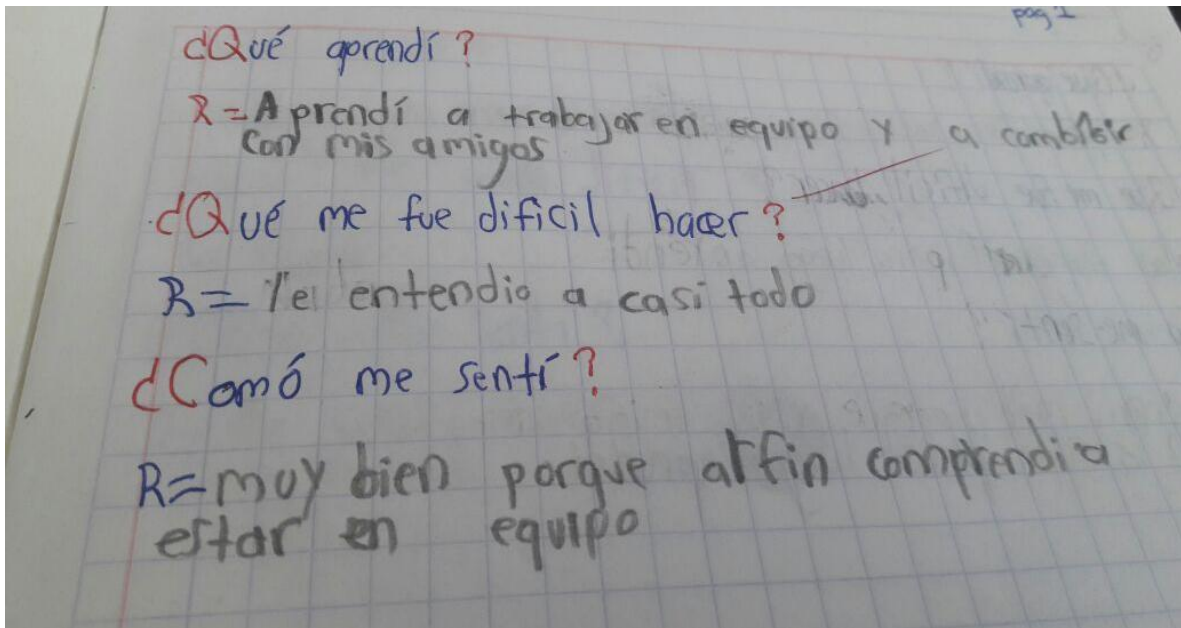 pag 1
¿Qué aprendí?
R=Aprendí a trabajar en equipo y a combibir
con mis amigos
¿Qué me fue dificil hacer?
R= entendio a casi todo
¿Comó me sentí?
R=muy bien porque al fin comprendi a
estar en equipo